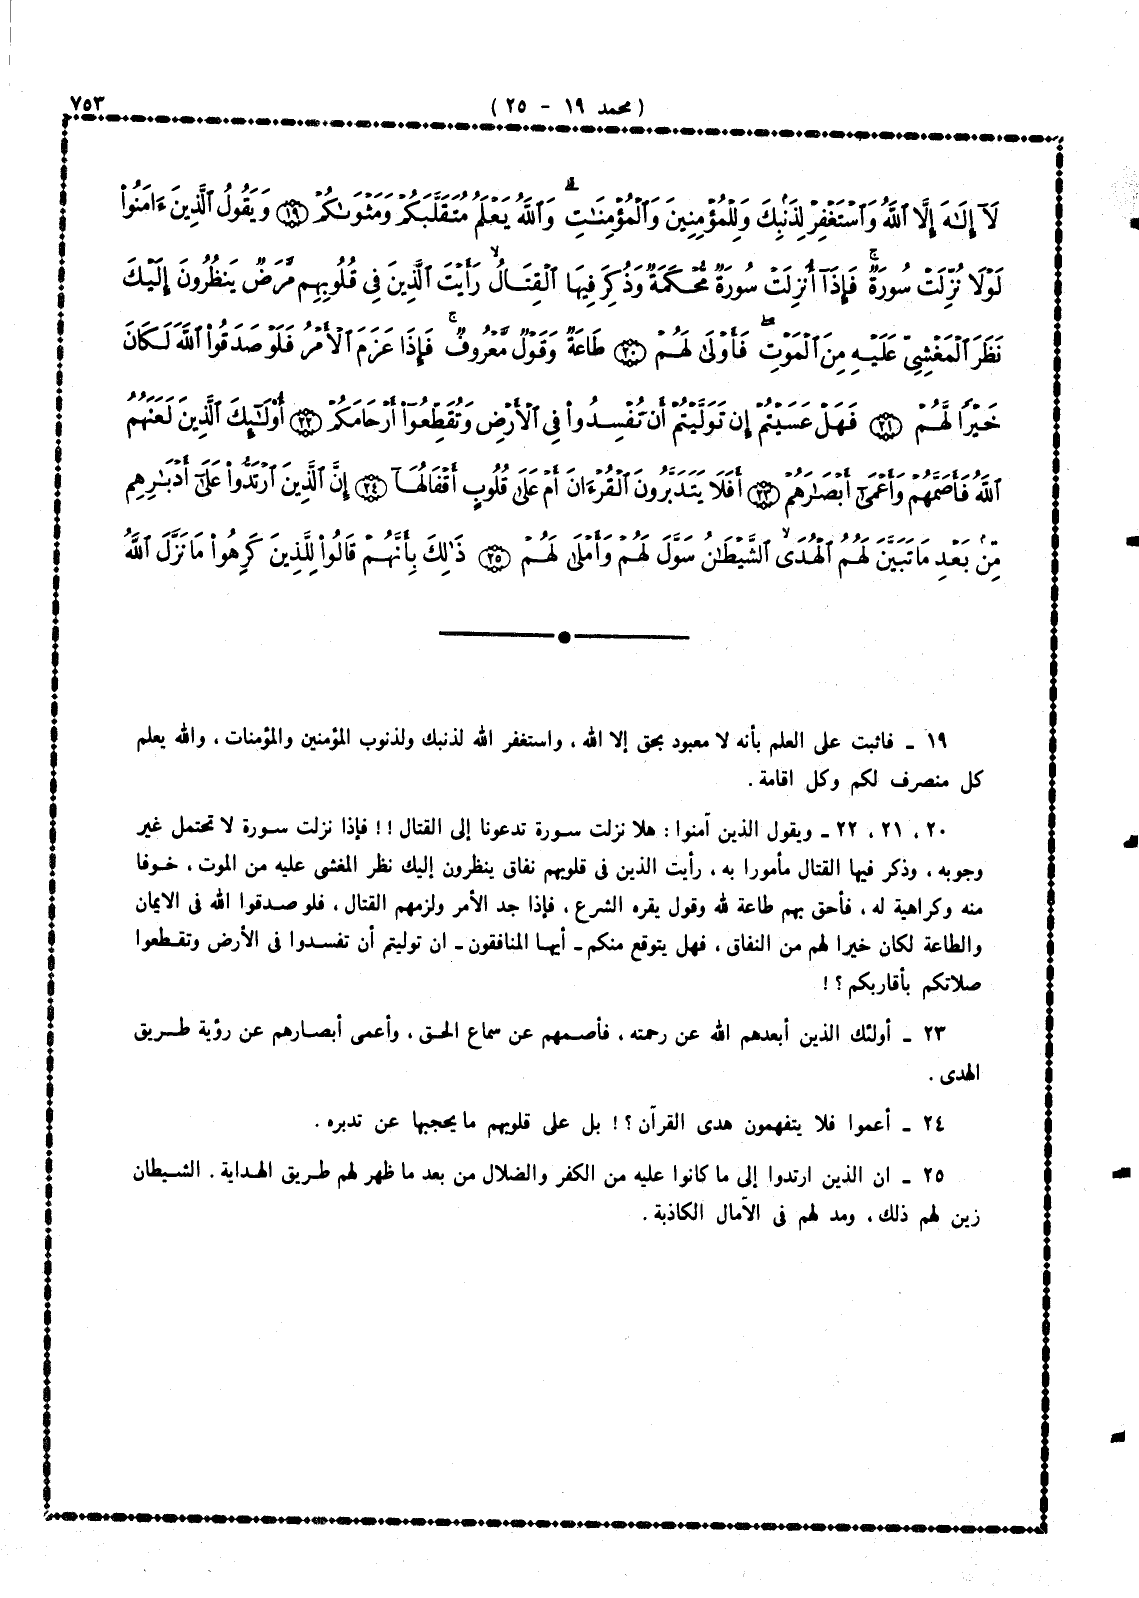 ( محمد ١٩ - ٢٥ )
٧٥٣
لَآ إِلَـٰهَ إِلَّا ٱللَّهُ وَٱسْتَغْفِرْ لِذَنۢبِكَ وَلِلْمُؤْمِنِينَ وَٱلْمُؤْمِنَـٰتِ ۗ وَٱللَّهُ يَعْلَمُ مُتَقَلَّبَكُمْ وَمَثْوَىٰكُمْ ﴿١٩﴾ وَيَقُولُ ٱلَّذِينَ ءَامَنُوا۟
لَوْلَا نُزِّلَتْ سُورَةٌ ۖ فَإِذَآ أُنزِلَتْ سُورَةٌ مُّحْكَمَةٌ وَذُكِرَ فِيهَا ٱلْقِتَالُ ۙ رَأَيْتَ ٱلَّذِينَ فِى قُلُوبِهِم مَّرَضٌ يَنظُرُونَ إِلَيْكَ
نَظَرَ ٱلْمَغْشِىِّ عَلَيْهِ مِنَ ٱلْمَوْتِ ۖ فَأَوْلَىٰ لَهُمْ ﴿٢٠﴾ طَاعَةٌ وَقَوْلٌ مَّعْرُوفٌ ۚ فَإِذَا عَزَمَ ٱلْأَمْرُ فَلَوْ صَدَقُوا۟ ٱللَّهَ لَكَانَ
خَيْرًا لَّهُمْ ﴿٢١﴾ فَهَلْ عَسَيْتُمْ إِن تَوَلَّيْتُمْ أَن تُفْسِدُوا۟ فِى ٱلْأَرْضِ وَتُقَطِّعُوٓا۟ أَرْحَامَكُمْ ﴿٢٢﴾ أُو۟لَـٰٓئِكَ ٱلَّذِينَ لَعَنَهُمُ
ٱللَّهُ فَأَصَمَّهُمْ وَأَعْمَىٰٓ أَبْصَـٰرَهُمْ ﴿٢٣﴾ أَفَلَا يَتَدَبَّرُونَ ٱلْقُرْءَانَ أَمْ عَلَىٰ قُلُوبٍ أَقْفَالُهَآ ﴿٢٤﴾ إِنَّ ٱلَّذِينَ ٱرْتَدُّوا۟ عَلَىٰٓ أَدْبَـٰرِهِم
مِّنۢ بَعْدِ مَا تَبَيَّنَ لَهُمُ ٱلْهُدَى ۙ ٱلشَّيْطَـٰنُ سَوَّلَ لَهُمْ وَأَمْلَىٰ لَهُمْ ﴿٢٥﴾ ذَٰلِكَ بِأَنَّهُمْ قَالُوا۟ لِلَّذِينَ كَرِهُوا۟ مَا نَزَّلَ ٱللَّهُ
١٩ ـ فاثبت على العلم بأنه لا معبود بحق إلا الله ، واستغفر الله لذنبك ولذنوب المؤمنين والمؤمنات ، والله يعلم
كل منصرف لكم وكل اقامة .
٢٠ ، ٢١ ، ٢٢ ـ ويقول الذين آمنوا : هلا نزلت سورة تدعونا إلى القتال !! فإذا نزلت سورة لا تحتمل غير
وجوبه ، وذكر فيها القتال مأمورا به ، رأيت الذين فى قلوبهم نفاق ينظرون إليك نظر المغشى عليه من الموت ، خوفا
منه وكراهية له ، فأحق بهم طاعة لله وقول يقره الشرع ، فإذا جد الأمر ولزمهم القتال ، فلو صدقوا الله فى الايمان
والطاعة لكان خيرا لهم من النفاق ، فهل يتوقع منكم ـ أيها المنافقون ـ ان توليتم أن تفسدوا فى الأرض وتقطعوا
صلاتكم بأقاربكم ؟ !
٢٣ ـ أولئك الذين أبعدهم الله عن رحمته ، فأصمهم عن سماع الحق ، وأعمى أبصارهم عن رؤية طريق
الهدى .
٢٤ ـ أعموا فلا يتفهمون هدى القرآن ؟ ! بل على قلوبهم ما يحجبها عن تدبره .
٢٥ ـ ان الذين ارتدوا إلى ما كانوا عليه من الكفر والضلال من بعد ما ظهر لهم طريق الهداية . الشيطان
زين لهم ذلك ، ومد لهم فى الآمال الكاذبة .